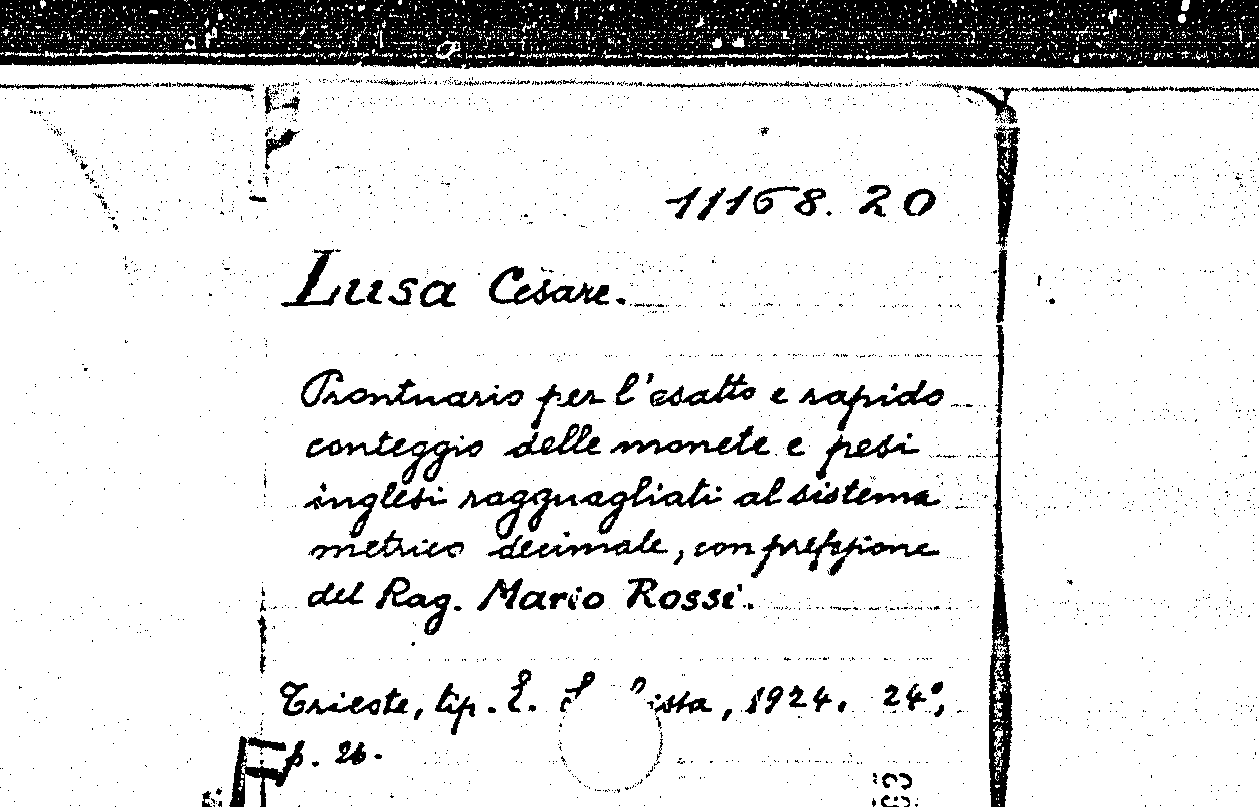 11168. 20
Lusa Cesare.
Prontuario per l'esatto e rapido
conteggio delle monete e pesi
inglesi ragguagliati al sistema
metrico decimale, con prefazione
del Rag. Mario Rossi.
Trieste, tip. E. 1924. 24°,
p. 26.